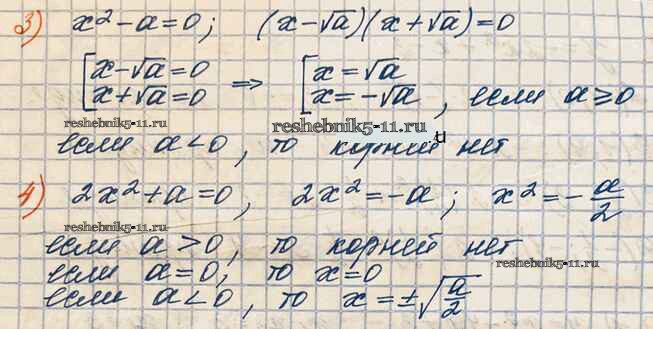 3) x² - a = 0; (x - √a)(x + √a) = 0
[x - √a = 0 ⇒ [x = √a
[x + √a = 0 [x = -√a, если a ≥ 0
reshebnik5-11.ru
reshebnik5-11.ru
если a < 0, то корней нет
4) 2x² + a = 0, 2x² = -a; x² = -a/2
reshebnik5-11.ru
если a > 0, то корней нет
reshebnik5-11.ru
если a = 0, то x = 0
если a < 0, то x = ±√(a/2)